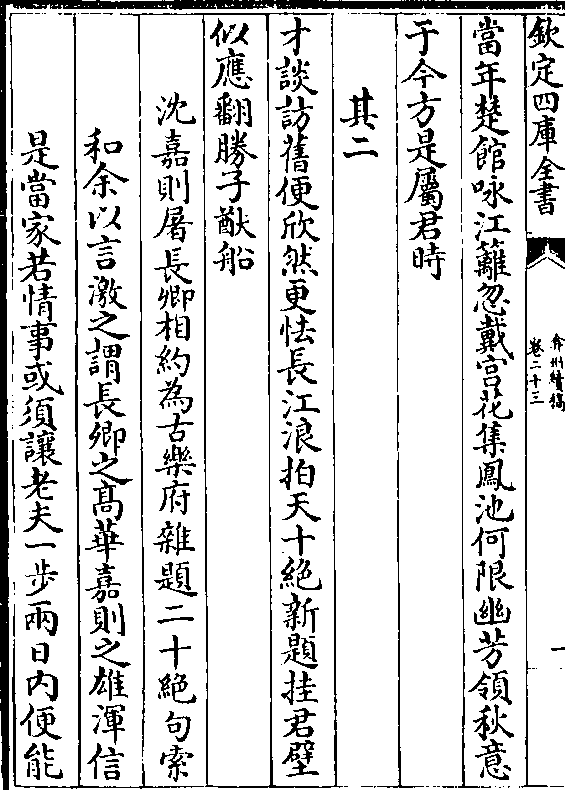 欽定四庫全書
弇州續稿
卷二十三
一
當年楚館咏江蘺忽戴宫花集鳳池何限幽芳領秋意
于今方是屬君時
其二
才談訪舊便欣然更怯長江浪拍天十絶新題挂君壁
似應翻勝子猷船
沈嘉則屠長卿相約為古樂府雜題二十絶句索
和余以言激之謂長卿之髙華嘉則之雄渾信
是當家若情事或須讓老夫一步兩日内便能